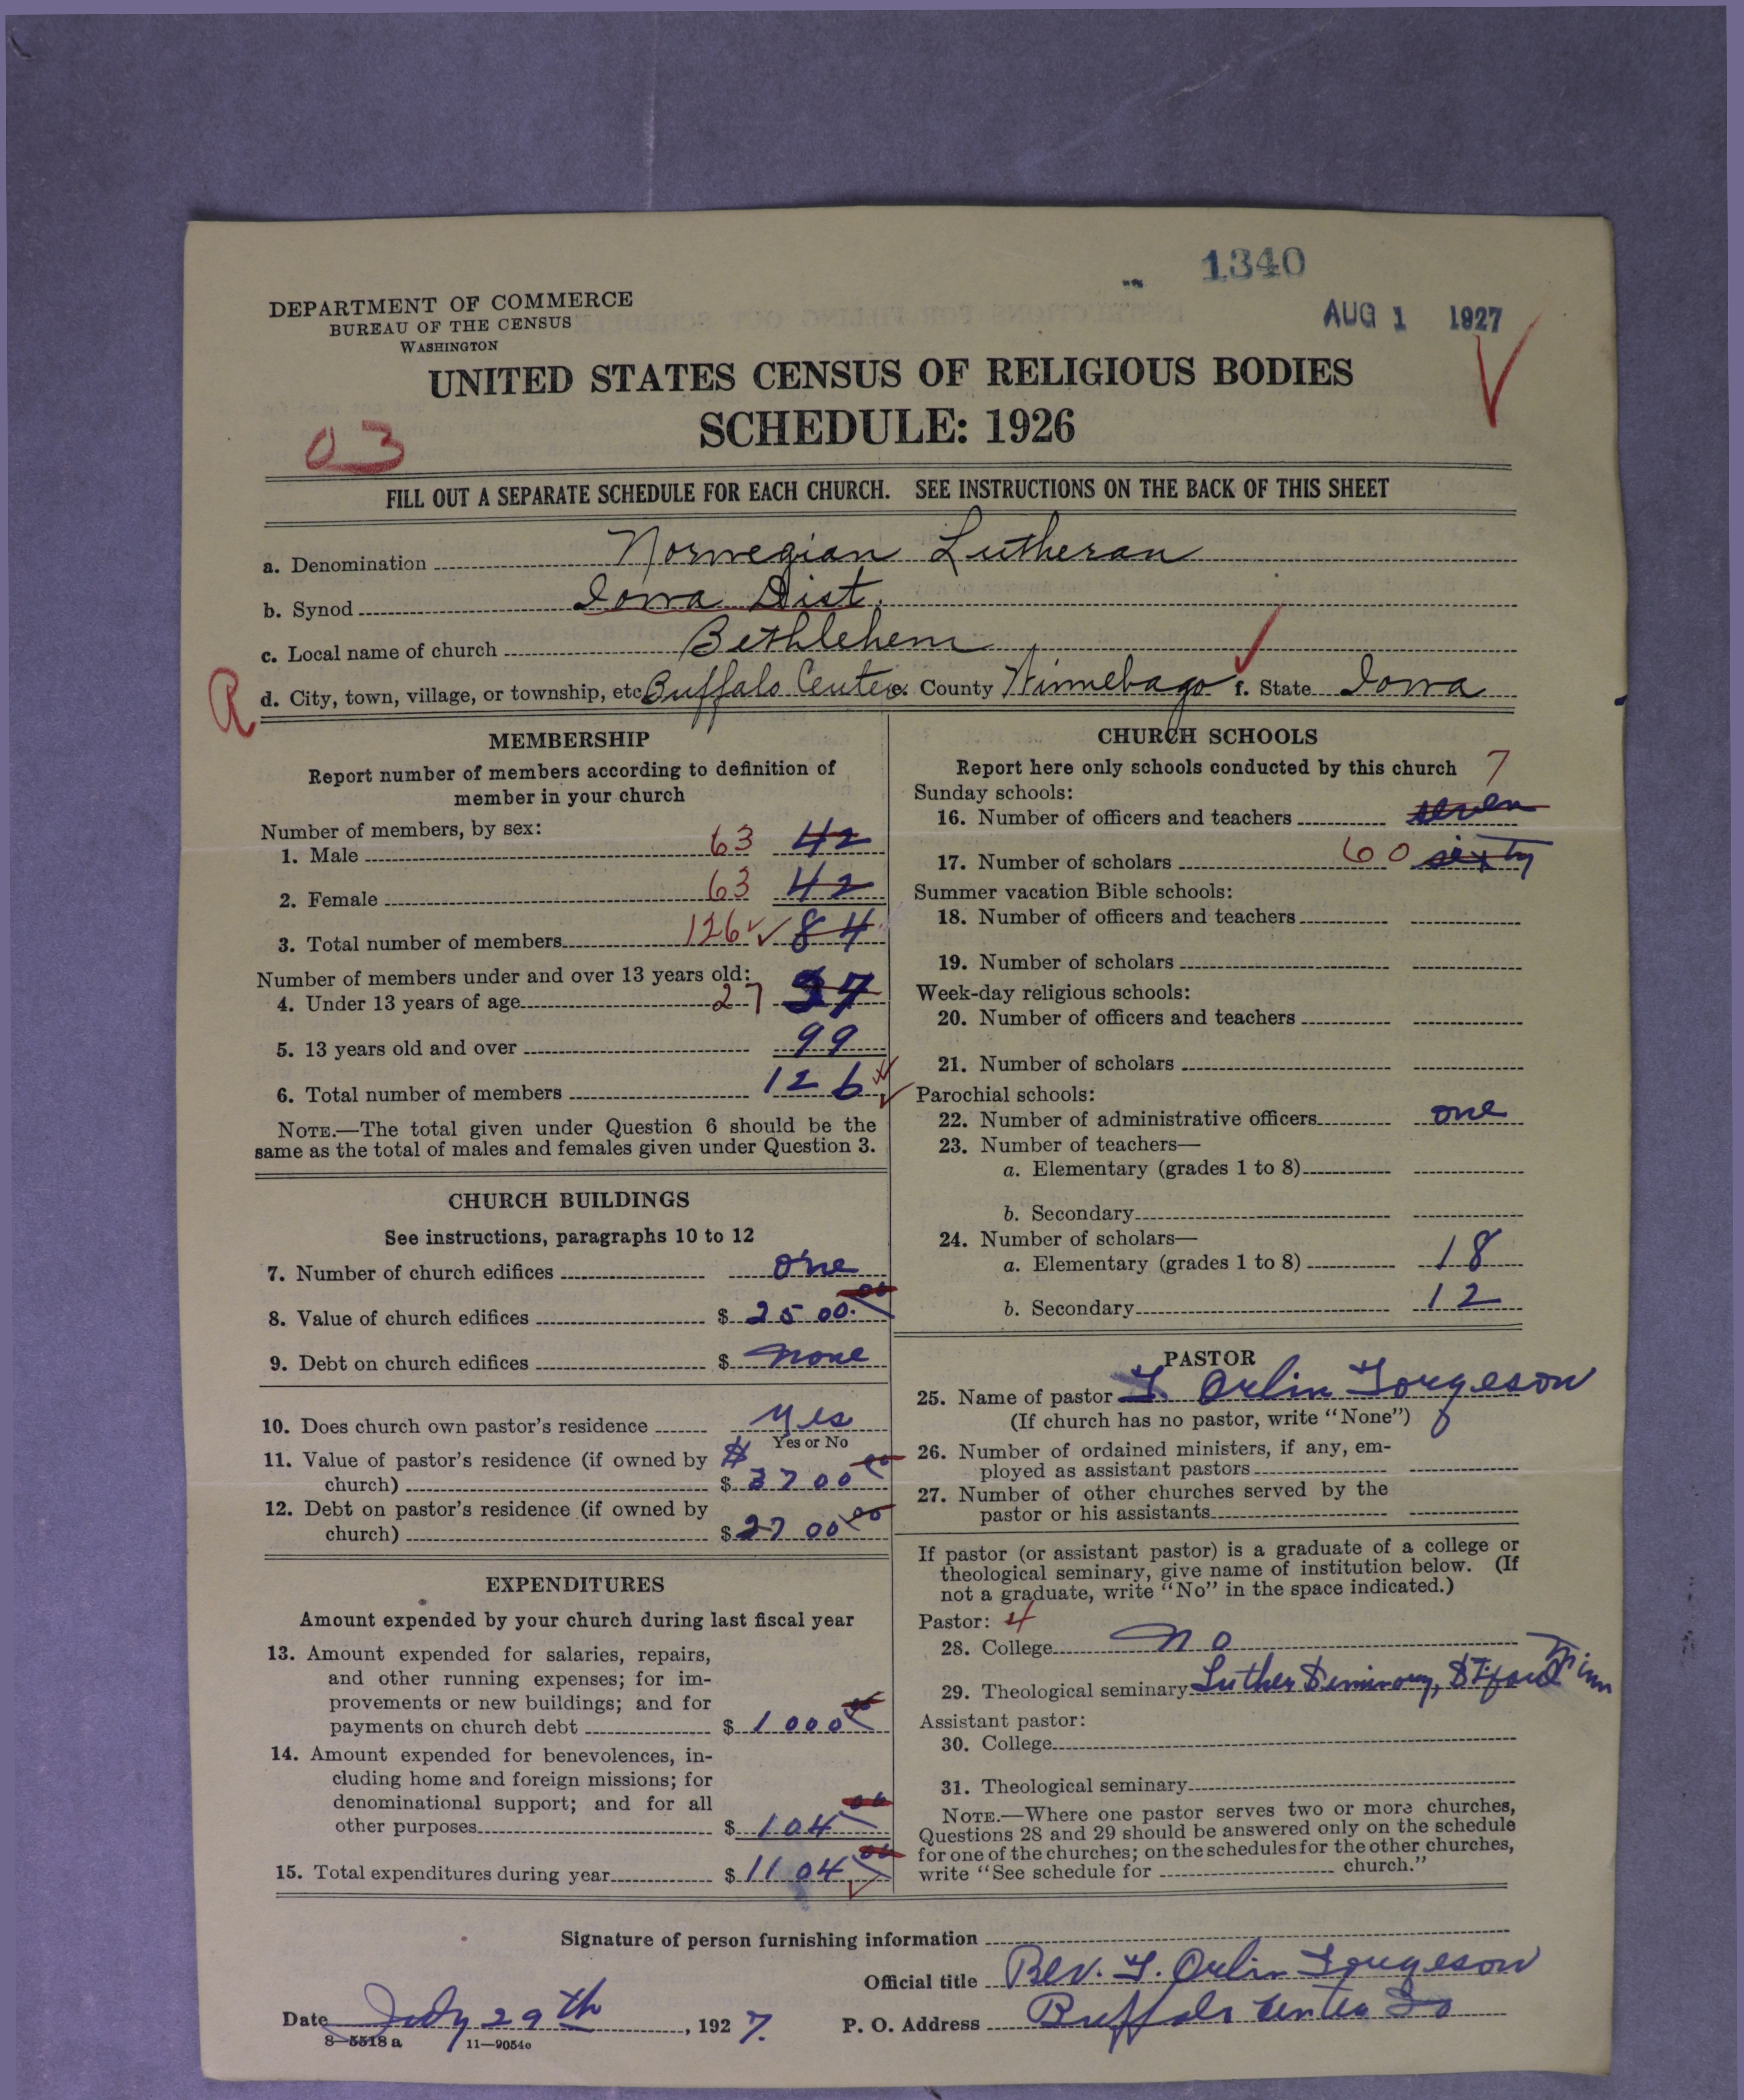 1340
AUG 1 1927
DEPARTMENT OF COMMERCE
BUREAU OF THE CENSUS
WASHINGTON
UNITED STATES CENSUS OF RELIGIOUS BODIES
SCHEDULE: 1926
03
FILL OUT A SEPARATE SCHEDULE FOR EACH CHURCH. SEE INSTRUCTIONS ON THE BACK OF THIS SHEET
a. Denomination Norwegian Lutheran
b. Synod Iowa Dist.
c. Local name of church Bethlehem
R d. City, town, village, or township, etc. Buffalo Center e. County Winnebago f. State Iowa
MEMBERSHIP
Report number of members according to definition of
member in your church
Number of members, by sex:
1. Male 63 42
2. Female 63 42
3. Total number of members 126 84
Number of members under and over 13 years old:
4. Under 13 years of age 27 37
5. 13 years old and over 99
6. Total number of members 126
NOTE.—The total given under Question 6 should be the
same as the total of males and females given under Question 3.
CHURCH BUILDINGS
See instructions, paragraphs 10 to 12
7. Number of church edifices one
8. Value of church edifices $ 2500.00
9. Debt on church edifices $ none
10. Does church own pastor's residence yes
Yes or No
11. Value of pastor's residence (if owned by $
church) $ 3700 00
12. Debt on pastor's residence (if owned by
church) $ 2700 00
EXPENDITURES
Amount expended by your church during last fiscal year
13. Amount expended for salaries, repairs,
and other running expenses; for im-
provements or new buildings; and for
payments on church debt $ 1000 00
14. Amount expended for benevolences, in-
cluding home and foreign missions; for
denominational support; and for all
other purposes $ 104 00
15. Total expenditures during year $ 1104 00
CHURCH SCHOOLS
Report here only schools conducted by this church 7
Sunday schools:
16. Number of officers and teachers seven
17. Number of scholars 60 sixty
Summer vacation Bible schools:
18. Number of officers and teachers
19. Number of scholars
Week-day religious schools:
20. Number of officers and teachers
21. Number of scholars
Parochial schools:
22. Number of administrative officers one
23. Number of teachers—
a. Elementary (grades 1 to 8)
b. Secondary
24. Number of scholars—
a. Elementary (grades 1 to 8) 18
b. Secondary 12
PASTOR
25. Name of pastor T. Orlin Torgeson
(If church has no pastor, write "None")
26. Number of ordained ministers, if any, em-
ployed as assistant pastors
27. Number of other churches served by the
pastor or his assistants
If pastor (or assistant pastor) is a graduate of a college or
theological seminary, give name of institution below. (If
not a graduate, write "No" in the space indicated.)
Pastor: 4
28. College no
29. Theological seminary Luther Seminary, St. Paul Minn
Assistant pastor:
30. College
31. Theological seminary
NOTE.—Where one pastor serves two or more churches,
Questions 28 and 29 should be answered only on the schedule
for one of the churches; on the schedules for the other churches,
write "See schedule for church."
Signature of person furnishing information
Official title Rev. T. Orlin Torgeson
Date July 29th, 1927. P. O. Address Buffalo Center Io
8—5518 a 11—9054c